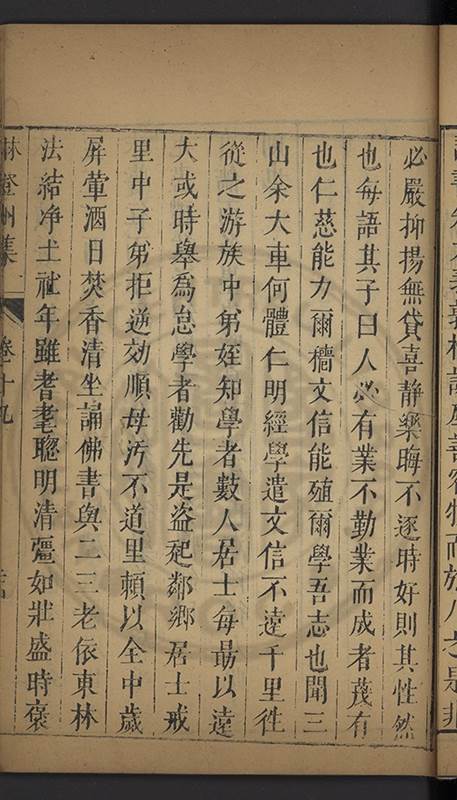 必嚴抑揚無貸喜靜樂晦不逐時好則其性然
也每語其子曰人必有業不勤業而成者蔑有
也仁慈能力爾穡文信能殖爾學吾志也聞三
山余大車何體仁明經學遣文信不遠千里徃
從之游族中弟姪知學者數人居士每勗以遠
大或時舉爲怠學者勸先是盗起鄰鄉居士戒
里中子弟拒逆効順毋汚不道里頼以全中歲
屏葷酒日焚香清坐誦佛書與二三老依東林
法結净土社年雖耆耄聰明清彊如壯盛時褒
林登州集 卷十九